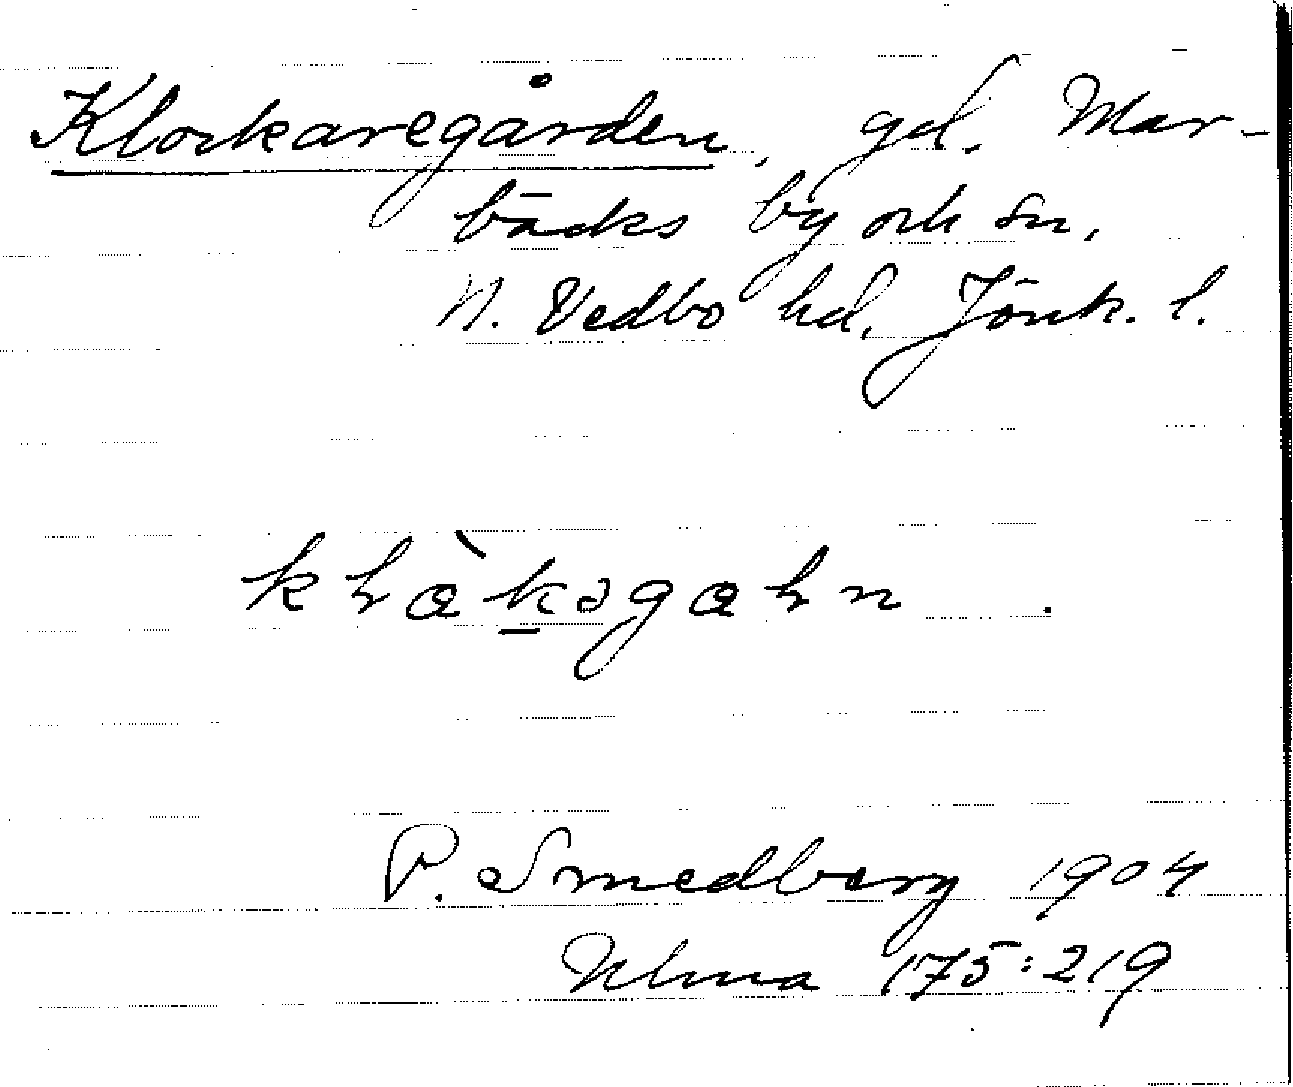 Klockaregården, gd. Mar-
bäcks by och sn,
N. Vedbo hd, Jönk. l.
P. Smedberg 1904
Ulma 175:219